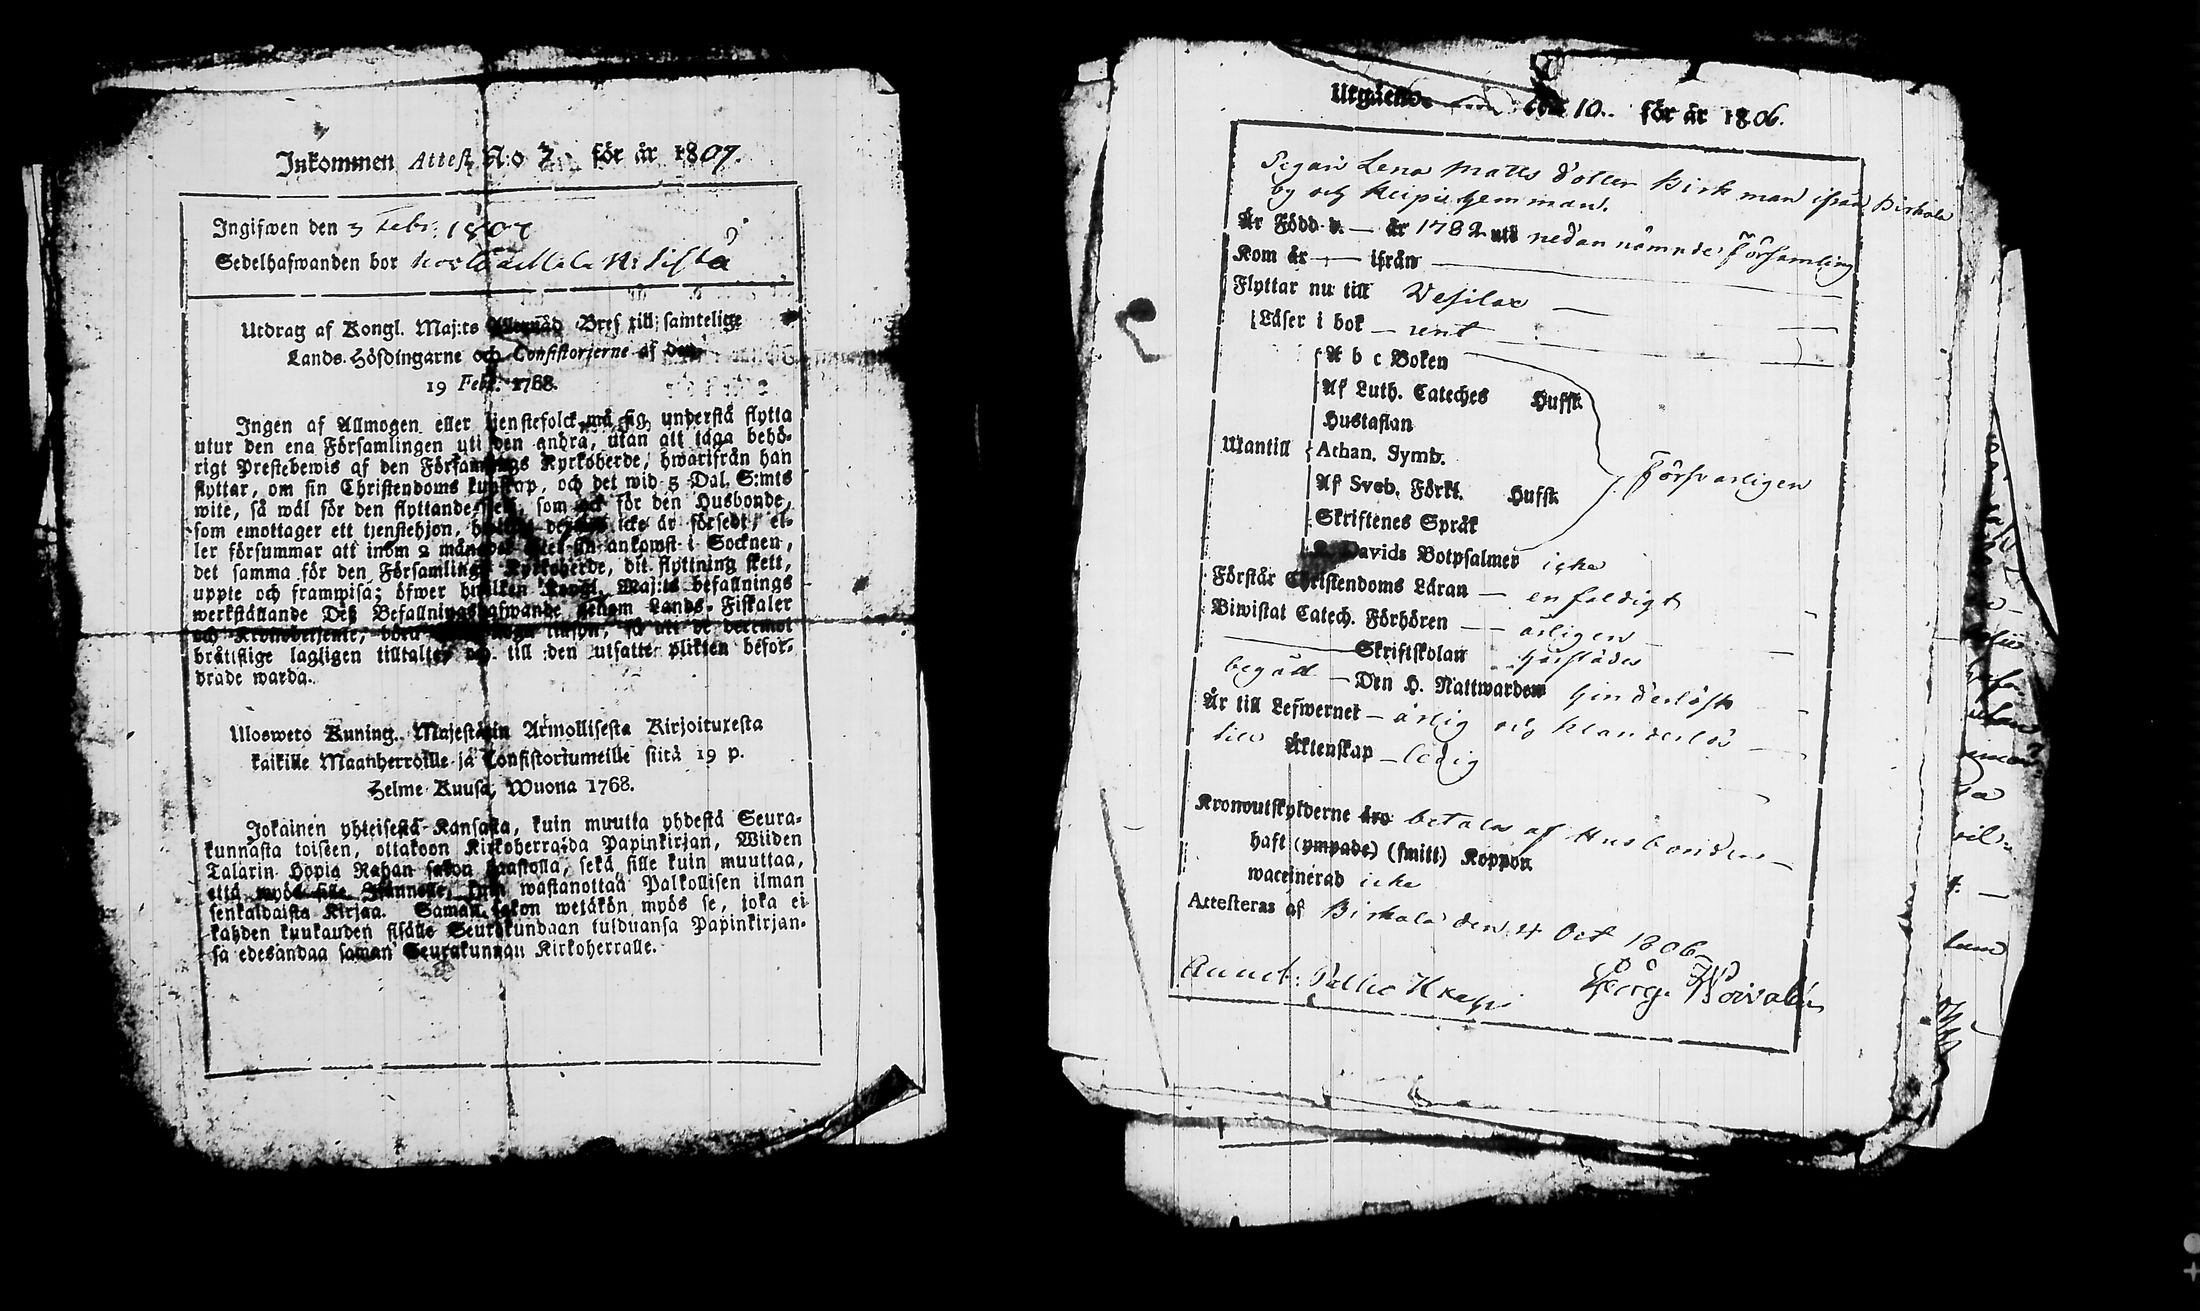 Inkommen Attest N:o 3. för år 1807.
Ingifwen den 3 Febr. 1807
Sedelhafwanden bor
Utdrag af Kongl. Maj:ts Allernåd Bref till samtelige
Lands-Höfdingarne och Consistorierne af den
19 Febr. 1768.
Ingen af Allmogen eller tjenstefolck må sig understå flytta
utur den ena Församlingen uti den andra, utan att taga behö-
rigt Prestebewis af den Församlings Kyrkoherde, hwarifrån han
flyttar, om sin Christendoms kunskap, och det wid 5 Dal. S:mts
wite, så wäl för den flyttande sielf, som ock för den Husbonde,
som emottager ett tjenstehjon, icke är försedt, el-
ler försummar att inom 2 månader efter sin ankomst i Socknen,
det samma för den Församlings Kyrkoherde, dit flyttning skett,
uppte och framwisa; öfwer hwilken Kongl. Maj:ts befallnings
werkställande Deß Befallningshafwande genom Lands-Fiskaler
och Kronobetjente, böra tillsyn, så att de deremot
bråttslige lagligen tilltalte och till den utsatte plikten befor-
drade warda.
Ulosweto Kuning. Majestätin Armollisesta Kirjoituxesta
kaikille Maanherroille ja Consistoriumeille siitä 19 p.
Helme-Kuusa, Wuona 1768.
Jokainen yhteisestä Kansasta, kuin muutta yhdestä Seura-
kunnasta toiseen, ottakoon Kirkoherralda Papinkirjan, Wiiden
Talarin Hopia Rahan sakon haastolla, sekä sille kuin muuttaa,
että myös sille Isännelle, kuin wastanottaa Palkollisen ilman
senkaldaista Kirjaa. Saman sakon wetäkön myös se, joka ei
kahden kuukauden sisälle Seurakundaan tulduansa Papinkirjan-
sa edesandaa saman Seurakunnan Kirkoherralle.
Utgående 10. för år 1806.
Pigan Lena Matts dotter Birkman ifrån Birkala
by och Reipi hemman.
Är Född d. — år 1782 uti nedannämnde Församling
Kom år — ifrån —
Flyttar nu till Wesilax —
Läser i bok — rent
A b c Boken
Af Luth. Cateches Hufst.
Hustaflan
Utantill Athan. Symb. Försvarligen
Af Sveb. Förkl. Hufst.
Skriftenes Språk
Davids Botpsalmer icke
Förstår Christendoms Läran — enfaldigt
Biwistat Catech. Förhören — årligen
Skriftskolan
begådt — Den H. Nattwarden hinderlöst
Är till Lefwernet — ärlig och klanderlös
till Äktenskap — ledig
Kronoutskylderne äro betalas af Husbonden —
haft (ympade) (smitt) Koppor
waccinerad icke
Attesteras af Birkala den 4 Oct 1806